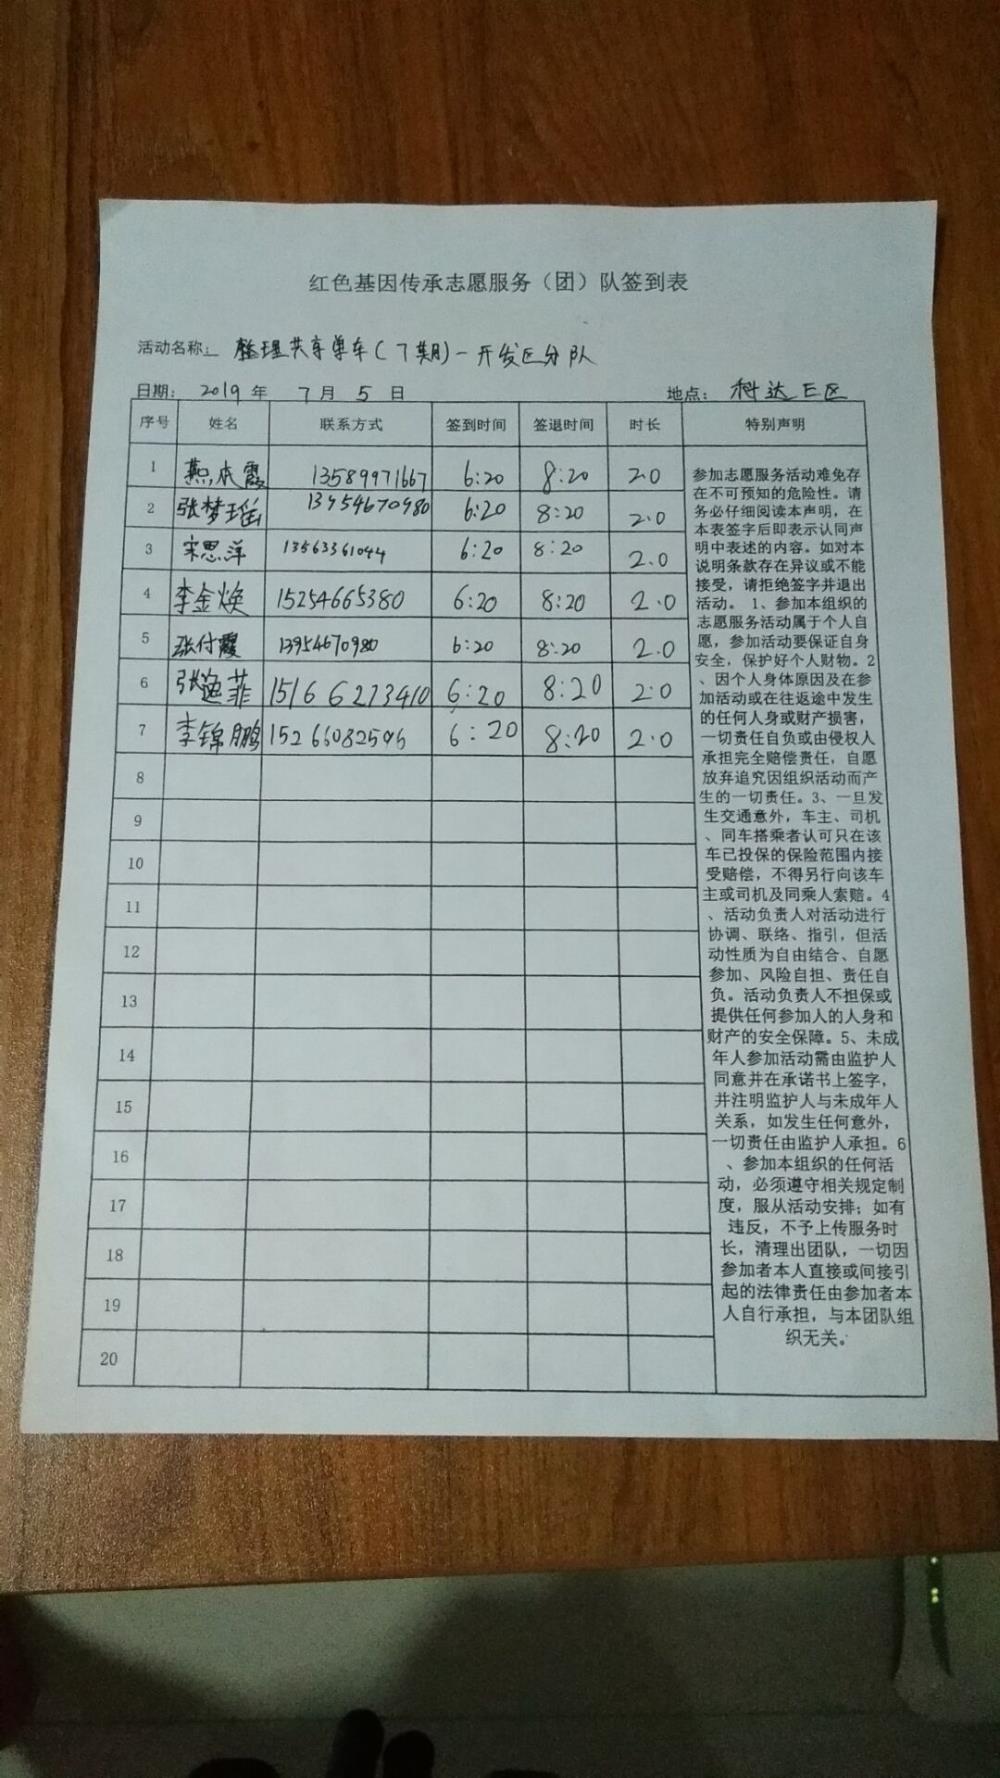 红色基因传承志愿服务（团）队签到表
活动名称： 整理共享单车（7期）-开发区分队
日期： 2019 年 7 月 5 日 地点： 科达E区
序号 姓名 联系方式 签到时间 签退时间 时长 特别声明
1 燕本霞 13589971667 6:20 8:20 2.0
2 张梦瑶 13954670980 6:20 8:20 2.0
3 宋思萍 13563361044 6:20 8:20 2.0
4 李金焕 15254665380 6:20 8:20 2.0
5 张付霞 13954670980 6:20 8:20 2.0
6 张逸菲 15166273410 6:20 8:20 2.0
7 李锦鹏 15266082596 6:20 8:20 2.0
8
9
10
11
12
13
14
15
16
17
18
19
20
参加志愿服务活动难免存
在不可预知的危险性。请
务必仔细阅读本声明，在
本表签字后即表示认同声
明中表述的内容。如对本
说明条款存在异议或不能
接受，请拒绝签字并退出
活动。 1、参加本组织的
志愿服务活动属于个人自
愿，参加活动要保证自身
安全，保护好个人财物。2
、因个人身体原因及在参
加活动或在往返途中发生
的任何人身或财产损害，
一切责任自负或由侵权人
承担完全赔偿责任，自愿
放弃追究因组织活动而产
生的一切责任。3、一旦发
生交通意外，车主、司机
、同车搭乘者认可只在该
车已投保的保险范围内接
受赔偿，不得另行向该车
主或司机及同乘人索赔。4
、活动负责人对活动进行
协调、联络、指引，但活
动性质为自由结合、自愿
参加、风险自担、责任自
负。活动负责人不担保或
提供任何参加人的人身和
财产的安全保障。5、未成
年人参加活动需由监护人
同意并在承诺书上签字，
并注明监护人与未成年人
关系，如发生任何意外，
一切责任由监护人承担。6
、参加本组织的任何活
动，必须遵守相关规定制
度，服从活动安排；如有
违反，不予上传服务时
长，清理出团队，一切因
参加者本人直接或间接引
起的法律责任由参加者本
人自行承担，与本团队组
织无关。